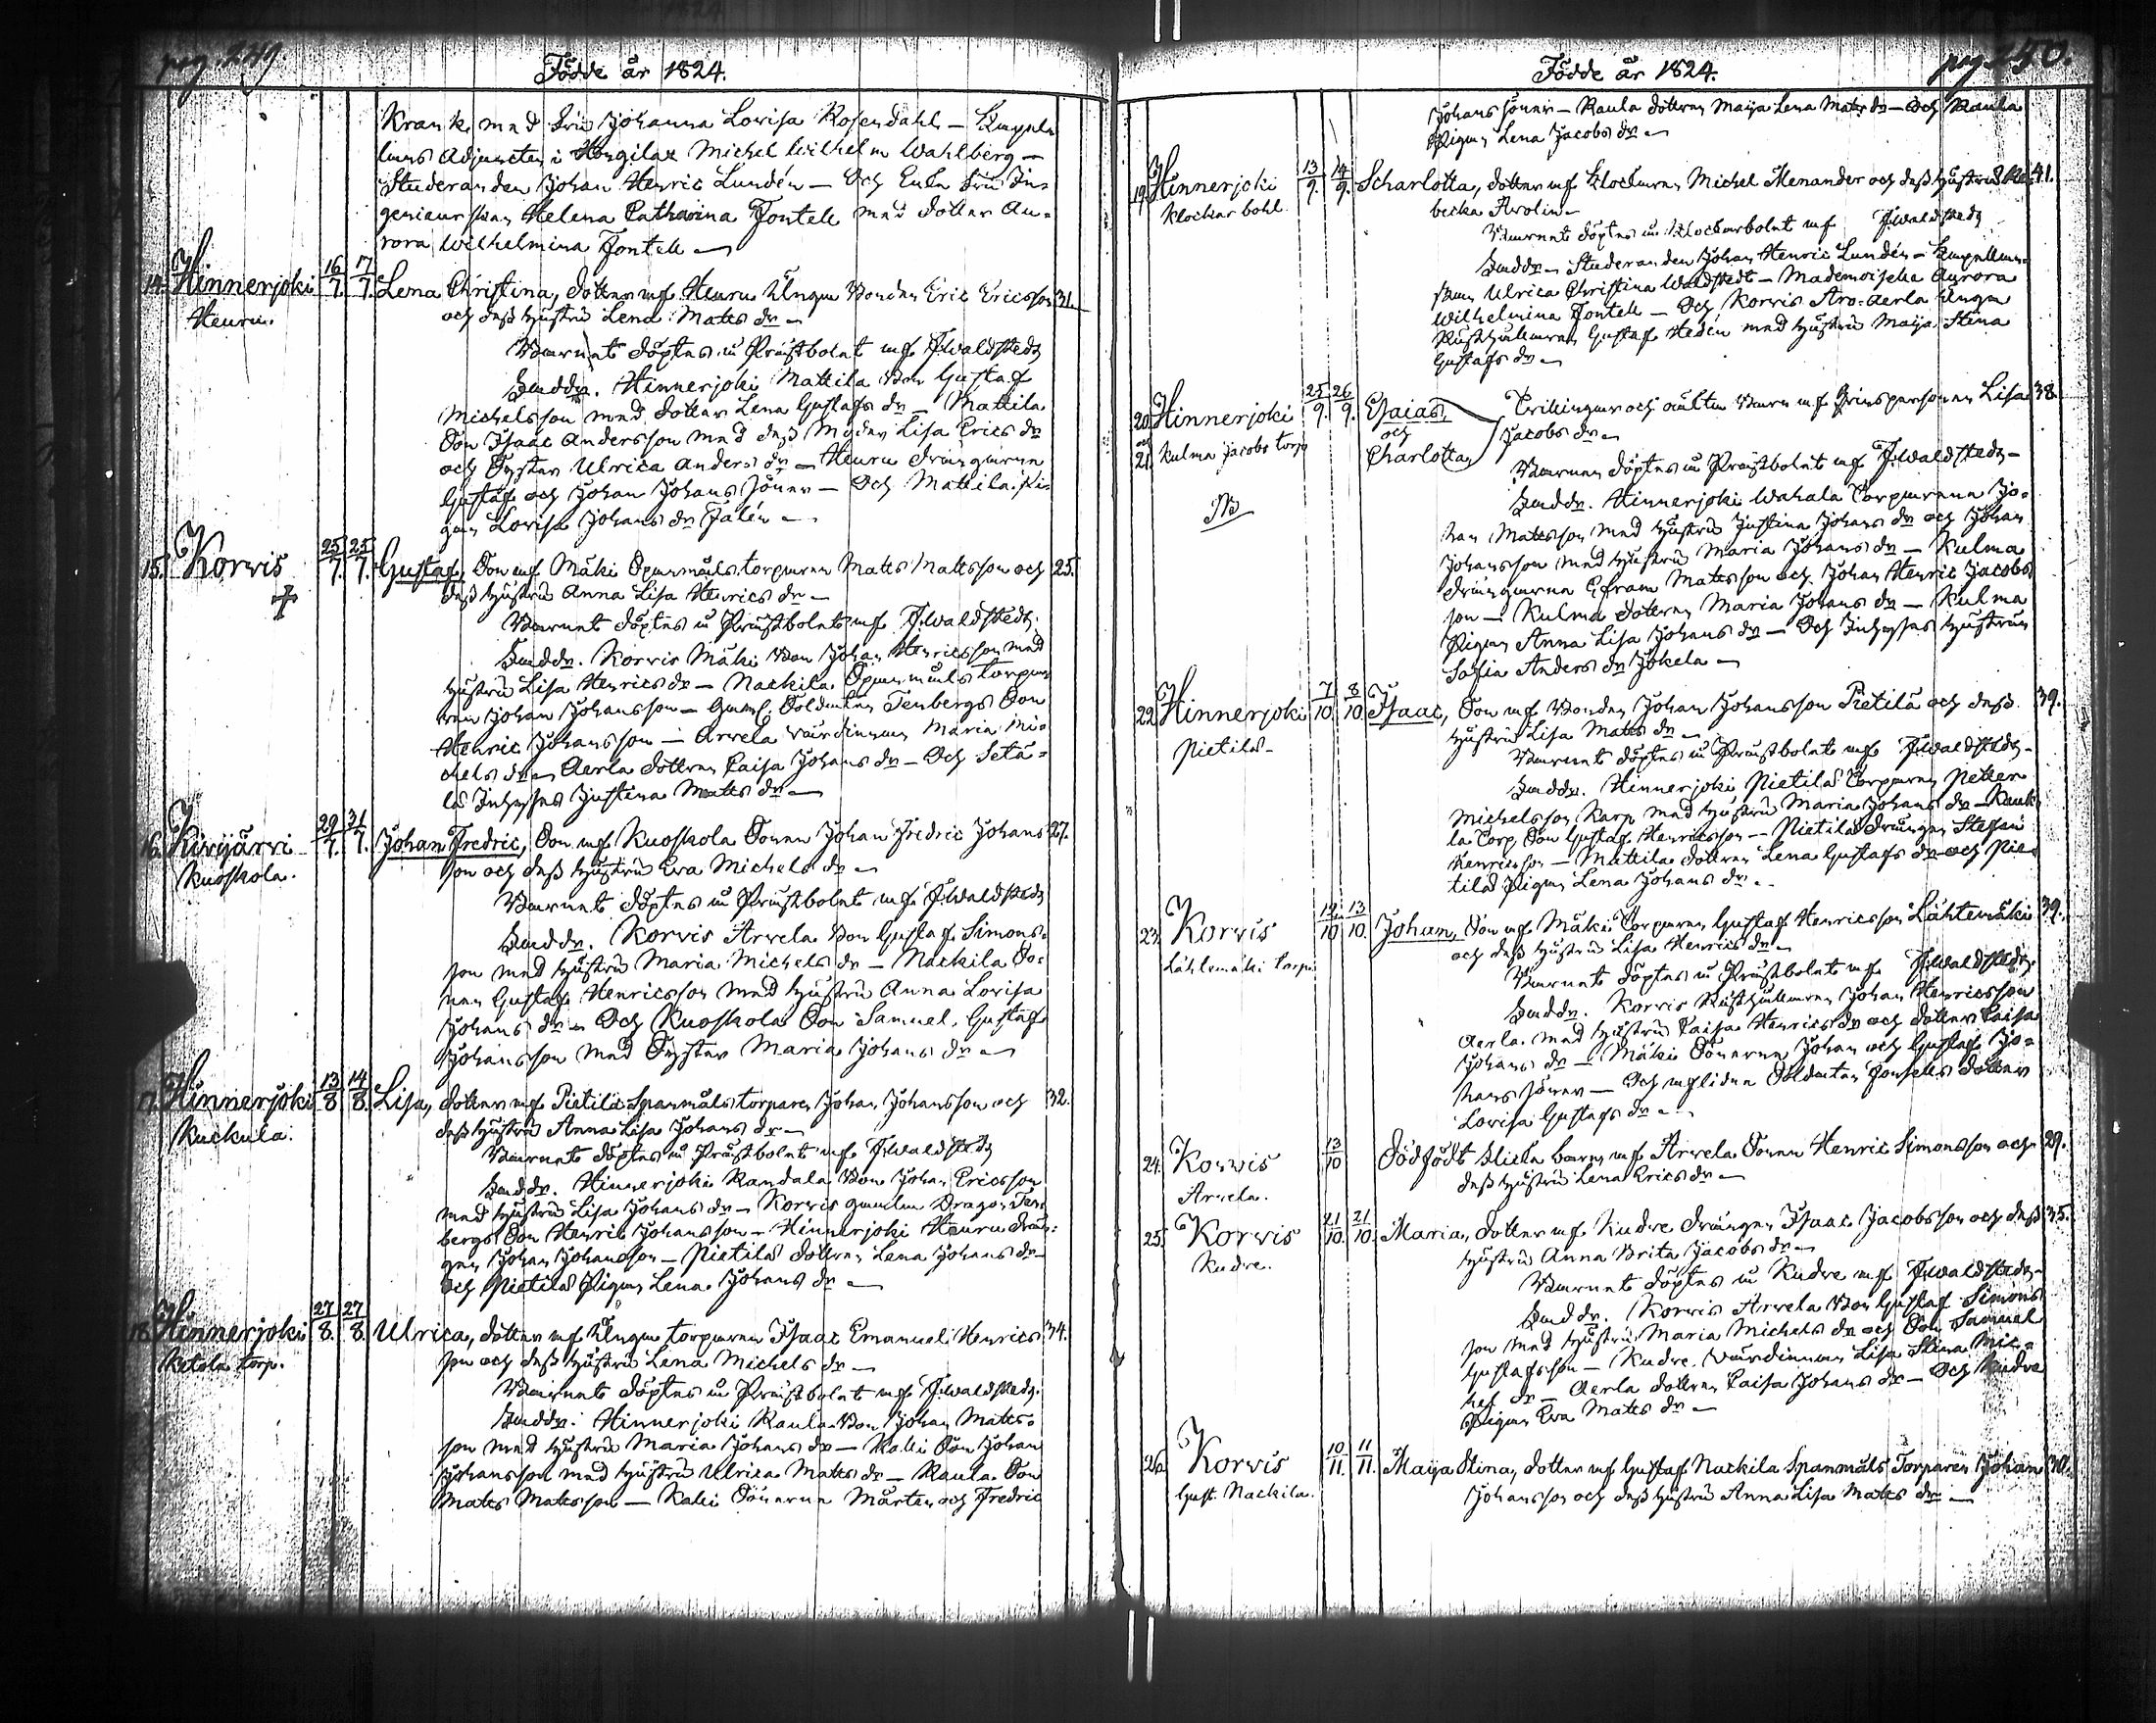 pag. 249.
Födde år 1824.
Krank med Fru Johanna Lovisa Rosendahl — Kapel-
lans Adjuncten i Hongilax Michel Wilhelm Wahlberg —
Studeranden Johan Henric Lundén — Och Enke Fru In-
genieurskan Helena Catharina Fontell med dotter Au-
rora Wilhelmina Fontell —
14. Hinnerjoki 16/7. 17/7. Lena Christina, dotter af Heuru Unga Bonden Eric Ericsson 31.
Heuru. och dess hustru Lena Mats dr —
Barnet döptes i Prästbolet af F. Waldstedt
Fadd:r. Hinnerjoki Mattila Bon Gustaf
Michelsson med dotter Lena Gustafs dr — Mattila
Son Isaac Andersson med dess Moder Lisa Erics dr
och Syster Ulrica Anders dr — Heuru drängarne
Gustaf och Johan Johans söner — Och Mattila Pi-
gan Lovisa Johans dr Falén —
15. Korvis 25/7. 25/7. Gustaf, Son af Mäki Spanmåls torparen Matts Mattsson och 25.
dess hustru Anna Lisa Henrics dr —
Barnet döptes i Prästbolet af F. Waldstedt
Fadd:r. Korvis Mäki Bon Johan Henricsson med
hustru Lisa Henrics dr — Nackila Spanmåls torpa-
ren Johan Johansson — Gaml. Soldaten Tenbergs Son
Henric Johansson — Arvela värdinnan Maria Mi-
chels dr — Aerla dottren Caisa Johans dr — Och Setä-
lä Inhyses Justina Matts dr —
16. Kivijärvi 29/7. 31/7. Johan Fredric, Son af Kuoskola Sonen Johan Fredric Johans 27.
Kuoskola. son och dess hustru Eva Michels dr —
Barnet döptes i Prästbolet af F. Waldstedt
Fadd:r. Korvis Arvela Bon Gustaf Simons-
son med hustru Maria Michels dr — Nackila So-
nen Gustaf Henricsson med hustru Anna Lovisa
Johans dr — Och Kuoskola Son Samuel Gustaf
Johansson med Syster Maria Johans dr —
17. Hinnerjoki 13/8. 14/8. Lisa, dotter af Pietilä Spanmåls torparen Johan Johansson och 32.
Kuckula. dess hustru Anna Lisa Johans dr —
Barnet döptes i Prästbolet af F. Waldstedt
Fadd:r. Hinnerjoki Kandala Bon Johan Ericsson
med hustru Lisa Johans dr — Korvis gamla Dragon Ten-
bergs Son Henric Johansson — Hinnerjoki Heuru drän-
gen Johan Johansson — Pietilä dottren Lena Johans dr —
och Pietilä Pigan Lena Johans dr —
18. Hinnerjoki 27/8. 27/8. Ulrica, dotter af Unga torparen Isaac Emanuel Henrics 34.
Ketola torp. son och dess hustru Lena Michels dr —
Barnet döptes i Prästbolet af F. Waldstedt
Fadd:r. Hinnerjoki Kaula Bon Johan Matts-
son med hustru Maria Johans dr — Kaki Son Johan
Johansson med hustru Ulrica Matts dr — Kaula Son
Matts Mattsson — Kaki Sönerne Mårten och Fredric
pag. 250.
Födde år 1824.
Johans söner — Kaula dottren Maija Lena Matts dr — Och Kaula
Pigan Lena Jacobs dr —
19. Hinnerjoki 13/9. 14/9. Scharlotta, dotter af Klockaren Michel Menander och dess hustru Re- 41.
Klockar bohl. becka Arolin —
Barnet döptes i Klockarbolet af F. Waldstedt
Fadd:r — Studeranden Johan Henric Lundén — Kapellan-
skan Ulrica Christina Waldstedt — Mademoiselle Aurora
Wilhelmina Fontell — Och Korvis Aro-Aerla Unga
Rusthållaren Gustaf Hedén med hustru Maija Stina
Gustafs dr —
20. Hinnerjoki 25/9. 26/9. Esaias, Tvillingar och oäkta Barn af Qvinspersonen Lisa 38.
och 21. Kulma Jacobs torp och Jacobs dr —
Charlotta,
Barnen döptes i Prästbolet af F. Waldstedt —
NB Fadd:r. Hinnerjoki Wahala Torparena Jo-
han Mattsson med hustru Justina Johans dr och Johan
Johansson med hustru Maria Johans dr — Kulma
drängarna Efram Mattsson och Johan Henric Jacobs
son — Kulma dottren Maria Johans dr — Kulma
Pigan Anna Lisa Johans dr — Och Inhyses hustrun
Sofia Anders dr Jokela —
22. Hinnerjoki 7/10. 8/10. Isaac, Son af Bonden Johan Johansson Pietilä och dess 39.
Pietilä — hustru Lisa Matts dr —
Barnet döptes i Prästbolet af F. Waldstedt —
Fadd:r. Hinnerjoki Pietilä Torparen Petter
Michelsson Karp med hustru Maria Johans dr — Kauk-
la Torp Son Gustaf Henricsson — Pietilä drängen Stefan
Henricsson — Mattila dottren Lena Gustafs dr och Pie-
tilä Pigan Lena Johans dr —
23. Korvis 12/10 13/10. Johan, Son af Mäki Torparen Gustaf Henricsson Lähtemäki 39.
Lähtemäki Torp. och dess hustru Lisa Henrics dr —
Barnet döptes i Prästbolet af F. Waldstedt
Fadd:r. Korvis Rusthållaren Johan Henricsson
Aerla med hustru Caisa Henrics dr och dotter Caisa
Johans dr — Mäki Sönerne Johan och Gustaf Jo-
hans söner — Och aflidne Soldaten Fonsells dotter
Lovisa Gustafs dr —
24. Korvis 13/10 Dödfödt Flicke barn af Arvela Sonen Henric Simonsson och 29.
Arvela. dess hustru Lena Erics dr —
25. Korvis 21/10. 21/10. Maria, dotter af Kudre drängen Isaac Jacobsson och dess 35.
Kudre. hustru Anna Brita Jacobs dr —
Barnet döptes i Kudre af F. Waldstedt —
Fadd:r. Korvis Arvela Bon Gustaf Simons
son med hustru Maria Michels dr och Son Samuel
Gustafsson — Kudre värdinnan Lisa Stina Mic-
hels dr — Aerla dottren Caisa Johans dr — Och Kudre
Pigan Eva Matts dr —
26. Korvis 10/11. 11/11. Maija Stina, dotter af Gustaf Nackila Spanmåls Torparen Johan 30.
Gust. Nackila. Johansson och dess hustru Anna Lisa Matts dr —